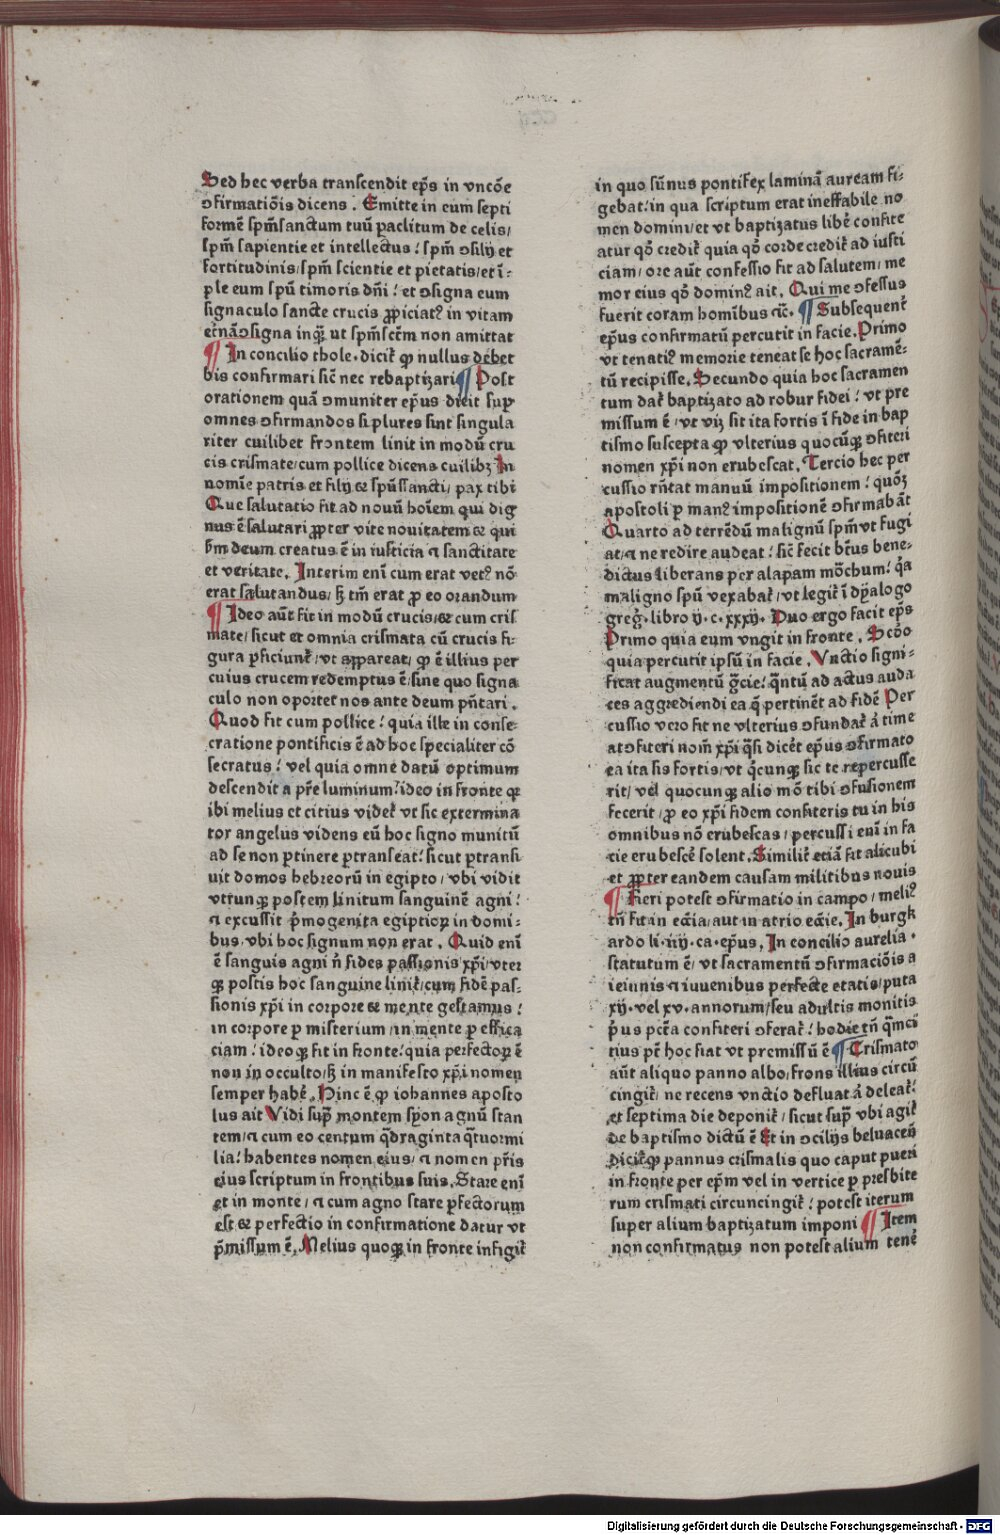 Sed hec verba transcendit ep̄s in vncōe
ɔfirmatiōis dicens . Emitte in eum septi
formē spm̄sanctum tuū paclitum de celis/
spm̄ sapientie et intellectus! spm̄ ɔsilij et
fortitudinis/spm̄ scientie et pietatis/et ī⸗
ple eum spū timoris dn̄i! et ɔsigna eum
signaculo sancte crucis ꝓpiciatꝰ in vitam
et̄nā ɔsigna inqꝫ ut spm̄sct̄m non amittat
¶ In concilio thole. dicit̄ ꝙ nullus debet
bis confirmari sic̄ nec rebaptizari ¶ Post
orationem quā ɔmuniter ep̄us dicit sup
omnes ɔfirmandos si plures sint singula
riter cuilibet frontem linit in modū cru
cis crismate/cum pollice dicens cuilibꝫ In
nomīe patris et filij ⁊ spūssancti/ pax tibi
Que salutatio fit ad nouū hoīem qui dig
nus ē salutari ꝓpter vite nouitatem ⁊ qui
ẜm deum creatus ē in iusticia ⁊ sanctitate
et veritate. Interim enī cum erat vetꝰ nō
erat salutandus/ ꜩ tm̄ erat ꝓ eo orandum
¶ Ideo aūt fit in modū crucis/⁊ cum cris
mate/ sicut et omnia crismata cū crucis fi⸗
gura ꝑficiunt̄/ vt appareat/ ꝙ ē illius per
cuius crucem redemptus ē/sine quo signa
culo non oportet nos ante deum pn̄tari .
Quod fit cum pollice! quia ille in conse⸗
cratione pontificis ē ad hoc specialiter cō
secratus! vel quia omne datū optimum
descendit a pr̄e luminum!ideo in fronte qꝛ
ibi melius et citius videt̄ vt sic extermina
tor angelus videns eū hoc signo munitū
ad se non ꝑtinere ꝑtranseat! sicut ꝑtransi
uit domos hebreorū in egipto/ vbi vidit
vtrunqꝫ postem linitum sanguinē agni!
⁊ excussit p̄mogenita egiptioꝝ in domi⸗
bus/vbi hoc signum non erat . Quid enī
ē sanguis agni n̄ fides passionis xp̄i/vter
qꝫ postis hoc sanguine linit̄/cum fidē pas⸗
sionis xp̄i in corpore ⁊ mente gestamus!
in corpore ꝑ misterium/in mente ꝑ effica
ciam! ideoqꝫ fit in fronte!quia perfectoꝝ ē
non in occulto/ꜩ in manifesto xp̄i nomen
semper habē. Hinc ē ꝙ iohannes aposto
lus ait Vidi sup̄ montem syon agnū stan
tem/⁊ cum eo centum q̄draginta q̄tuormi
lia! habentes nomen eius/ ⁊ nomen pr̄is
eius scriptum in frontibus suis. Stare enī
et in monte/ ⁊ cum agno stare ꝑfectorum
est ⁊ perfectio in confirmatione datur vt
p̄missum ē. Melius quoqꝫ in fronte infigit̄
in quo sūnus pontifex laminā auream fi⸗
gebat!in qua scriptum erat ineffabile no
men domini/et vt baptizatus liberē confite
atur qd̄ credit̄ quia qd̄ corde credit̄ ad iusti
ciam/ore aūt confessio fit ad salutem/ me
mor eius qd̄ dominꝰ ait. Qui me ɔfessus
fuerit coram homībus ⁊c̄. ¶ Subsequent̄
ep̄us confirmatū percutit in facie. Primo
vt tenatiꝰ memorie teneat se hoc sacramē⸗
tū recipisse. Secundo quia hoc sacramen
tum dat̄ baptizato ad robur fidei! vt pre
missum ē/vt viꝫ sit ita fortis ī fide in bap
tismo suscepta ꝙ vlterius quocūqꝫ ɔfiteri
nomen xp̄i non erubescat. Tercio hec per
cussio rn̄tat manuū impositionem! quoꝫ
apostoli ꝑ manꝰ impositionē ɔfirmabāt
Quarto ad terrēdū malignū spm̄ vt fugi
at/⁊ ne redire audeat! sic̄ fecit bt̄us bene⸗
dictus liberans per alapam mōchum! q̄a
maligno spū vexabat̄/vt legit̄ ī dyalogo
greg̅. libro ij.c.xxxij. Duo ergo facit ep̄s
Primo quia eum vngit in fronte . Scd̄o
quia percutit ipsū in facie. Vnctio signi⸗
ficat augmentū gr̄cie! q̄ntū ad actus auda
ces aggrediendi ea q̄ pertinēt ad fidē Per
cussio vero fit ne vlterius ɔfundat̄ ⁊ time
at ɔfiteri nom̄ xp̄i q̄si dicēt ep̄us ɔfirmato
ea ita sis fortis/vt q̄cunqꝫ sic te repercusse
rit/ vel quocunqꝫ alio mō tibi ɔfusionem
fecerit/ ꝓ eo xp̄i fidem confiteris tu in his
omnibus nō erubescas/percussi enī in fa
cie erubescē solent. Similit̄ eciā fit alicubi
et ꝓpter eandem causam militibus nouis
¶ Fieri potest ɔfirmatio in campo/meliꝰ
tn̄ fit in ecc̄ia/aut in atrio ecc̄ie. In burgk
ardo li.iiij.ca.ep̄us. In concilio aurelia .
statutum ē/ vt sacramentū ɔfirmaciōis a
ieiunis ⁊ iuuenibus perfecte etatis/puta
xij. vel xv. annorum/seu adultis monitis
p̄us pcc̄ta confiteri ɔferat̄! hodie tn̄ q̄mci
tius pt̄ hoc fiat vt premissū ē ¶ Crismato
aūt aliquo panno albo/frons illius circū
cingit̄/ ne recens vnctio defluat ⁊ deleat̄!
et septima die deponit̄/sicut sup̄ vbi agit̄
de baptismo dictū ē Et in ɔcilijs beluaceñ
dicit̄ ꝙ pannus crismalis quo caput pueri
in fronte per ep̄m vel in vertice ꝑ presbite
rum crismati circuncingit̄! potest iterum
super alium baptizatum imponi ¶ Item
non confirmatus non potest alium tenē
Digitalisierung gefördert durch die Deutsche Forschungsgemeinschaft - DFG